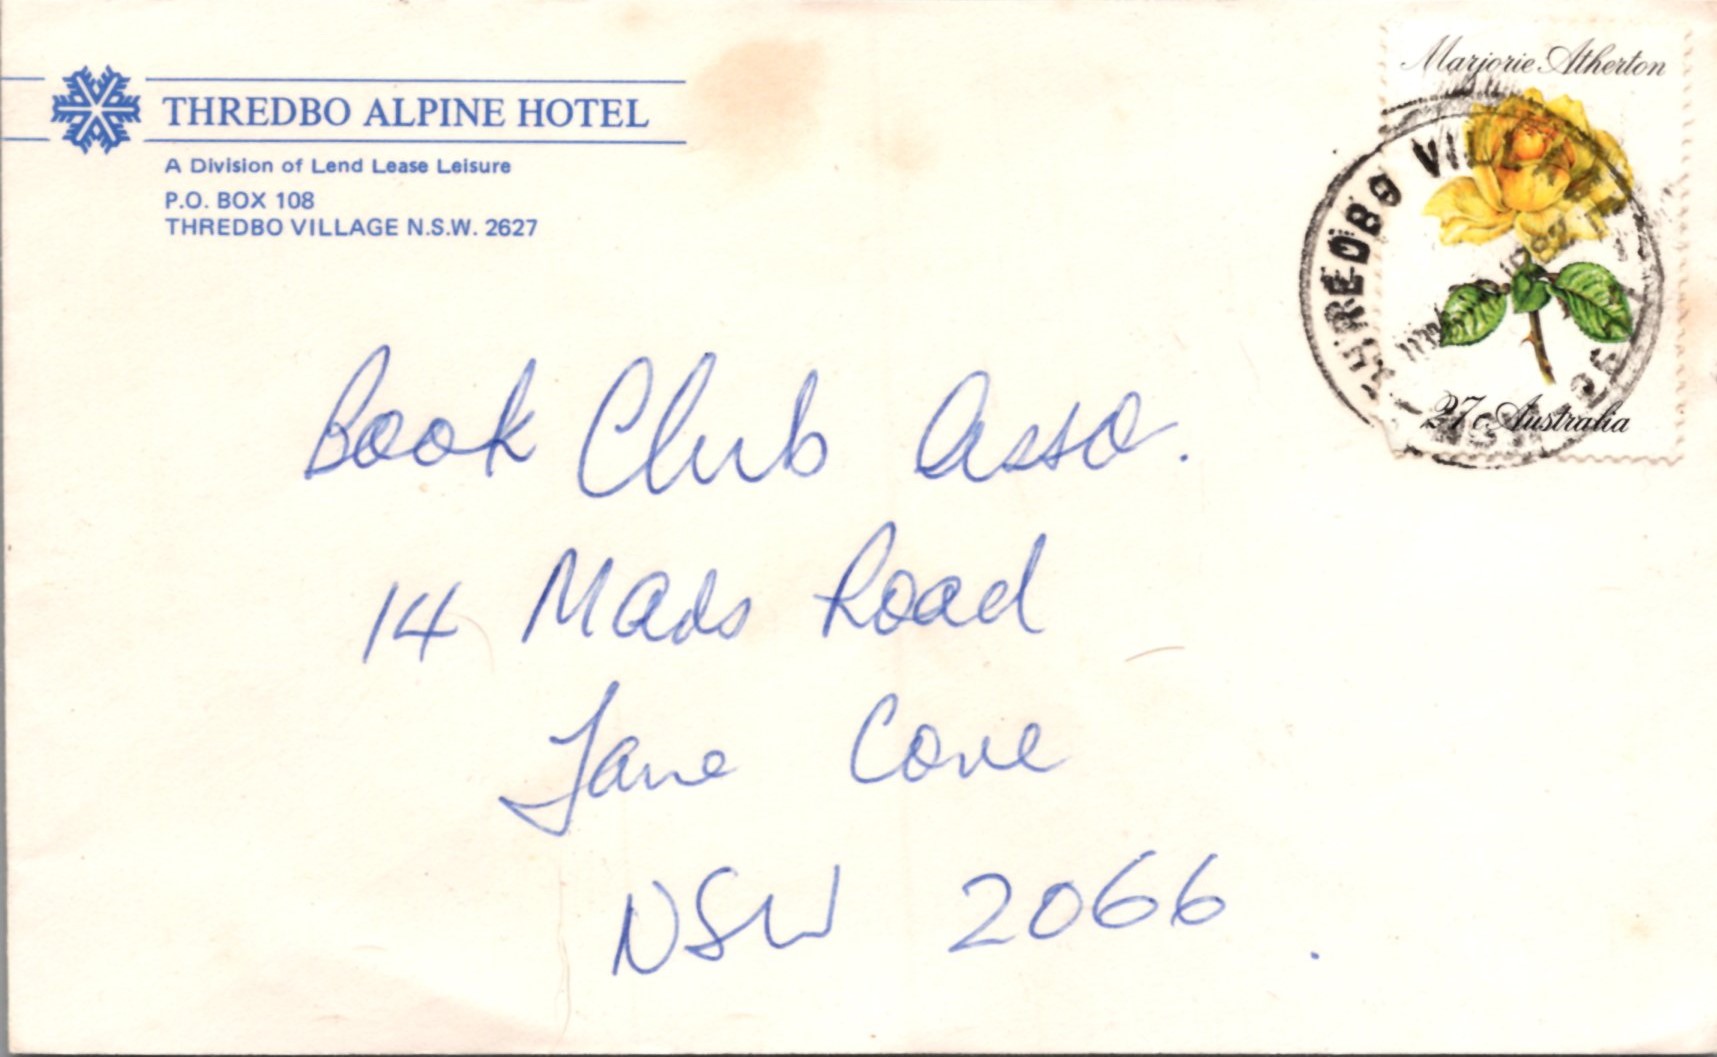 THREDBO ALPINE HOTEL
A Division of Lend Lease Leisure
P.O. BOX 108
THREDBO VILLAGE N.S.W. 2627
Marjorie Atherton
THREDBO VILLAGE
27c Australia
Book Club Asso.
14 Mads Road
Lane Cove
NSW 2066